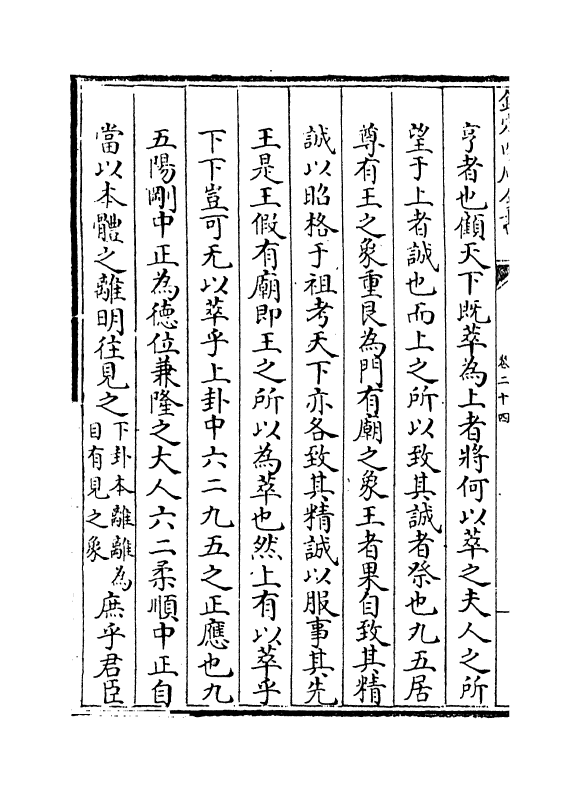 欽定四庫全書
卷二十四
亨者也顧天下既萃為上者將何以萃之夫人之所
望于上者誠也而上之所以致其誠者祭也九五居
尊有王之象重艮為門有廟之象王者果自致其精
誠以昭格于祖考天下亦各致其精誠以服事其先
王是王假有廟即王之所以為萃也然上有以萃乎
下下豈可无以萃乎上卦中六二九五之正應也九
五陽剛中正為德位兼隆之大人六二柔順中正自
當以本體之離明往見之下卦本離離為目有見之象庶乎君臣